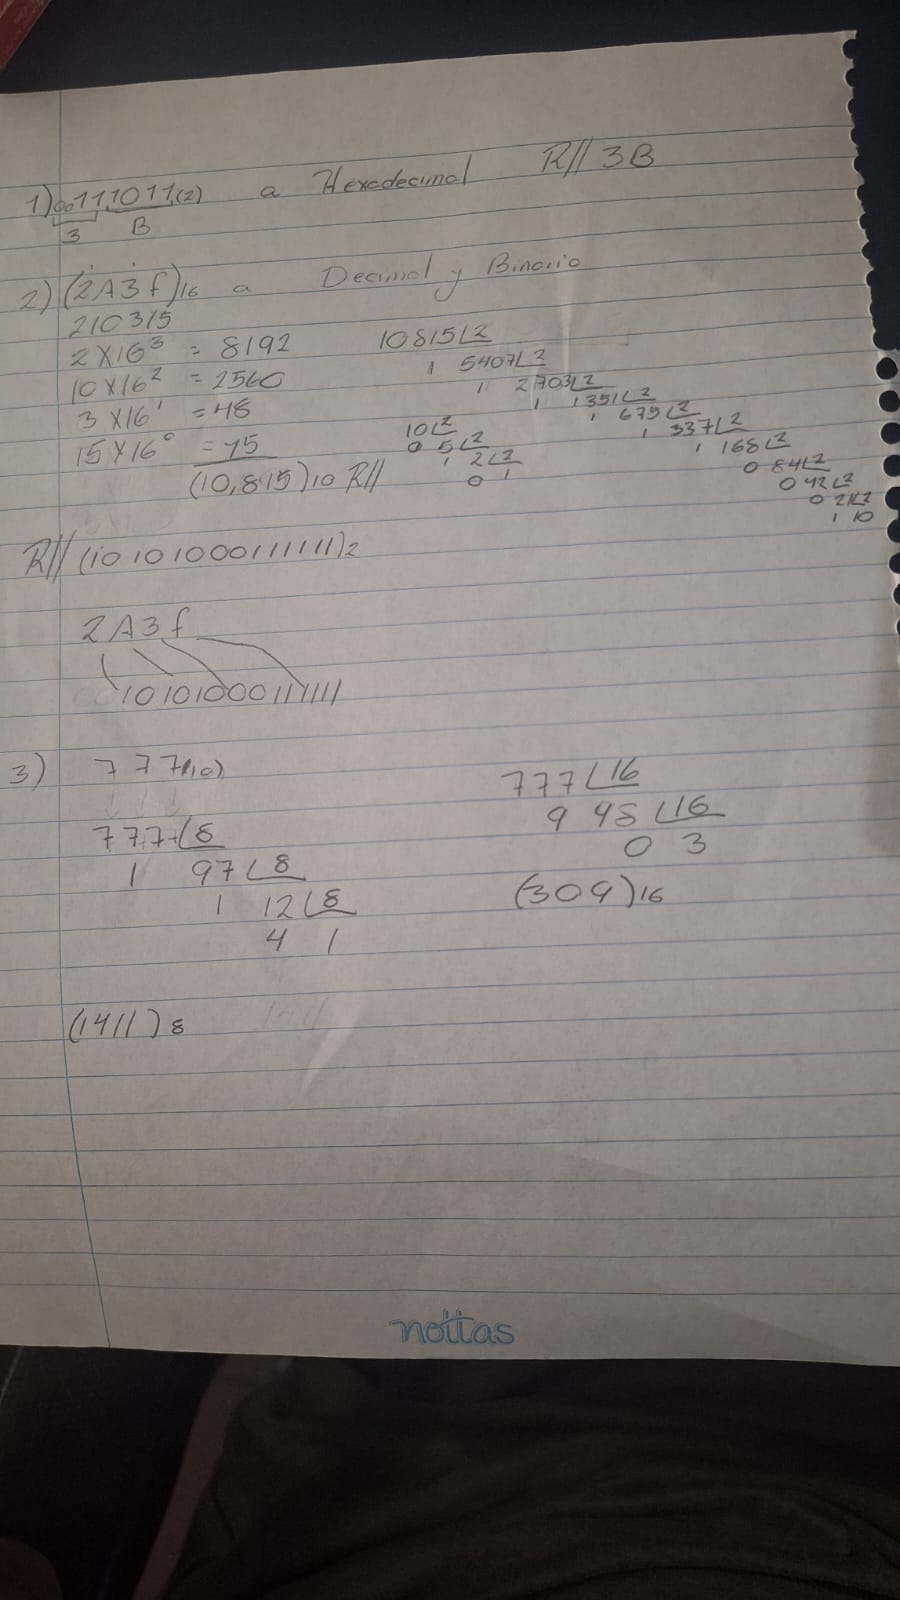 1) 00111011(2) a Hexadecimal R// 3B
3 B
2) (2A3f)16 a Decimal y Binario
210315
2x16³ = 8192
10x16² = 2560
3x16¹ = 48
15x16⁰ = 15
(10,815)10 R//
10815∟2
1 5407∟2
1 2703∟2
1 1351∟2
1 675∟2
1 337∟2
1 168∟2
0 84∟2
0 42∟2
0 21∟2
1 10
10∟2
0 5∟2
1 2∟2
0 1
R// (10101000111111)2
2A3f
10101000111111
3) 777(10)
777∟8
1 97∟8
1 12∟8
4 1
(1411)8
777∟16
9 48∟16
0 3
(309)16
nottas